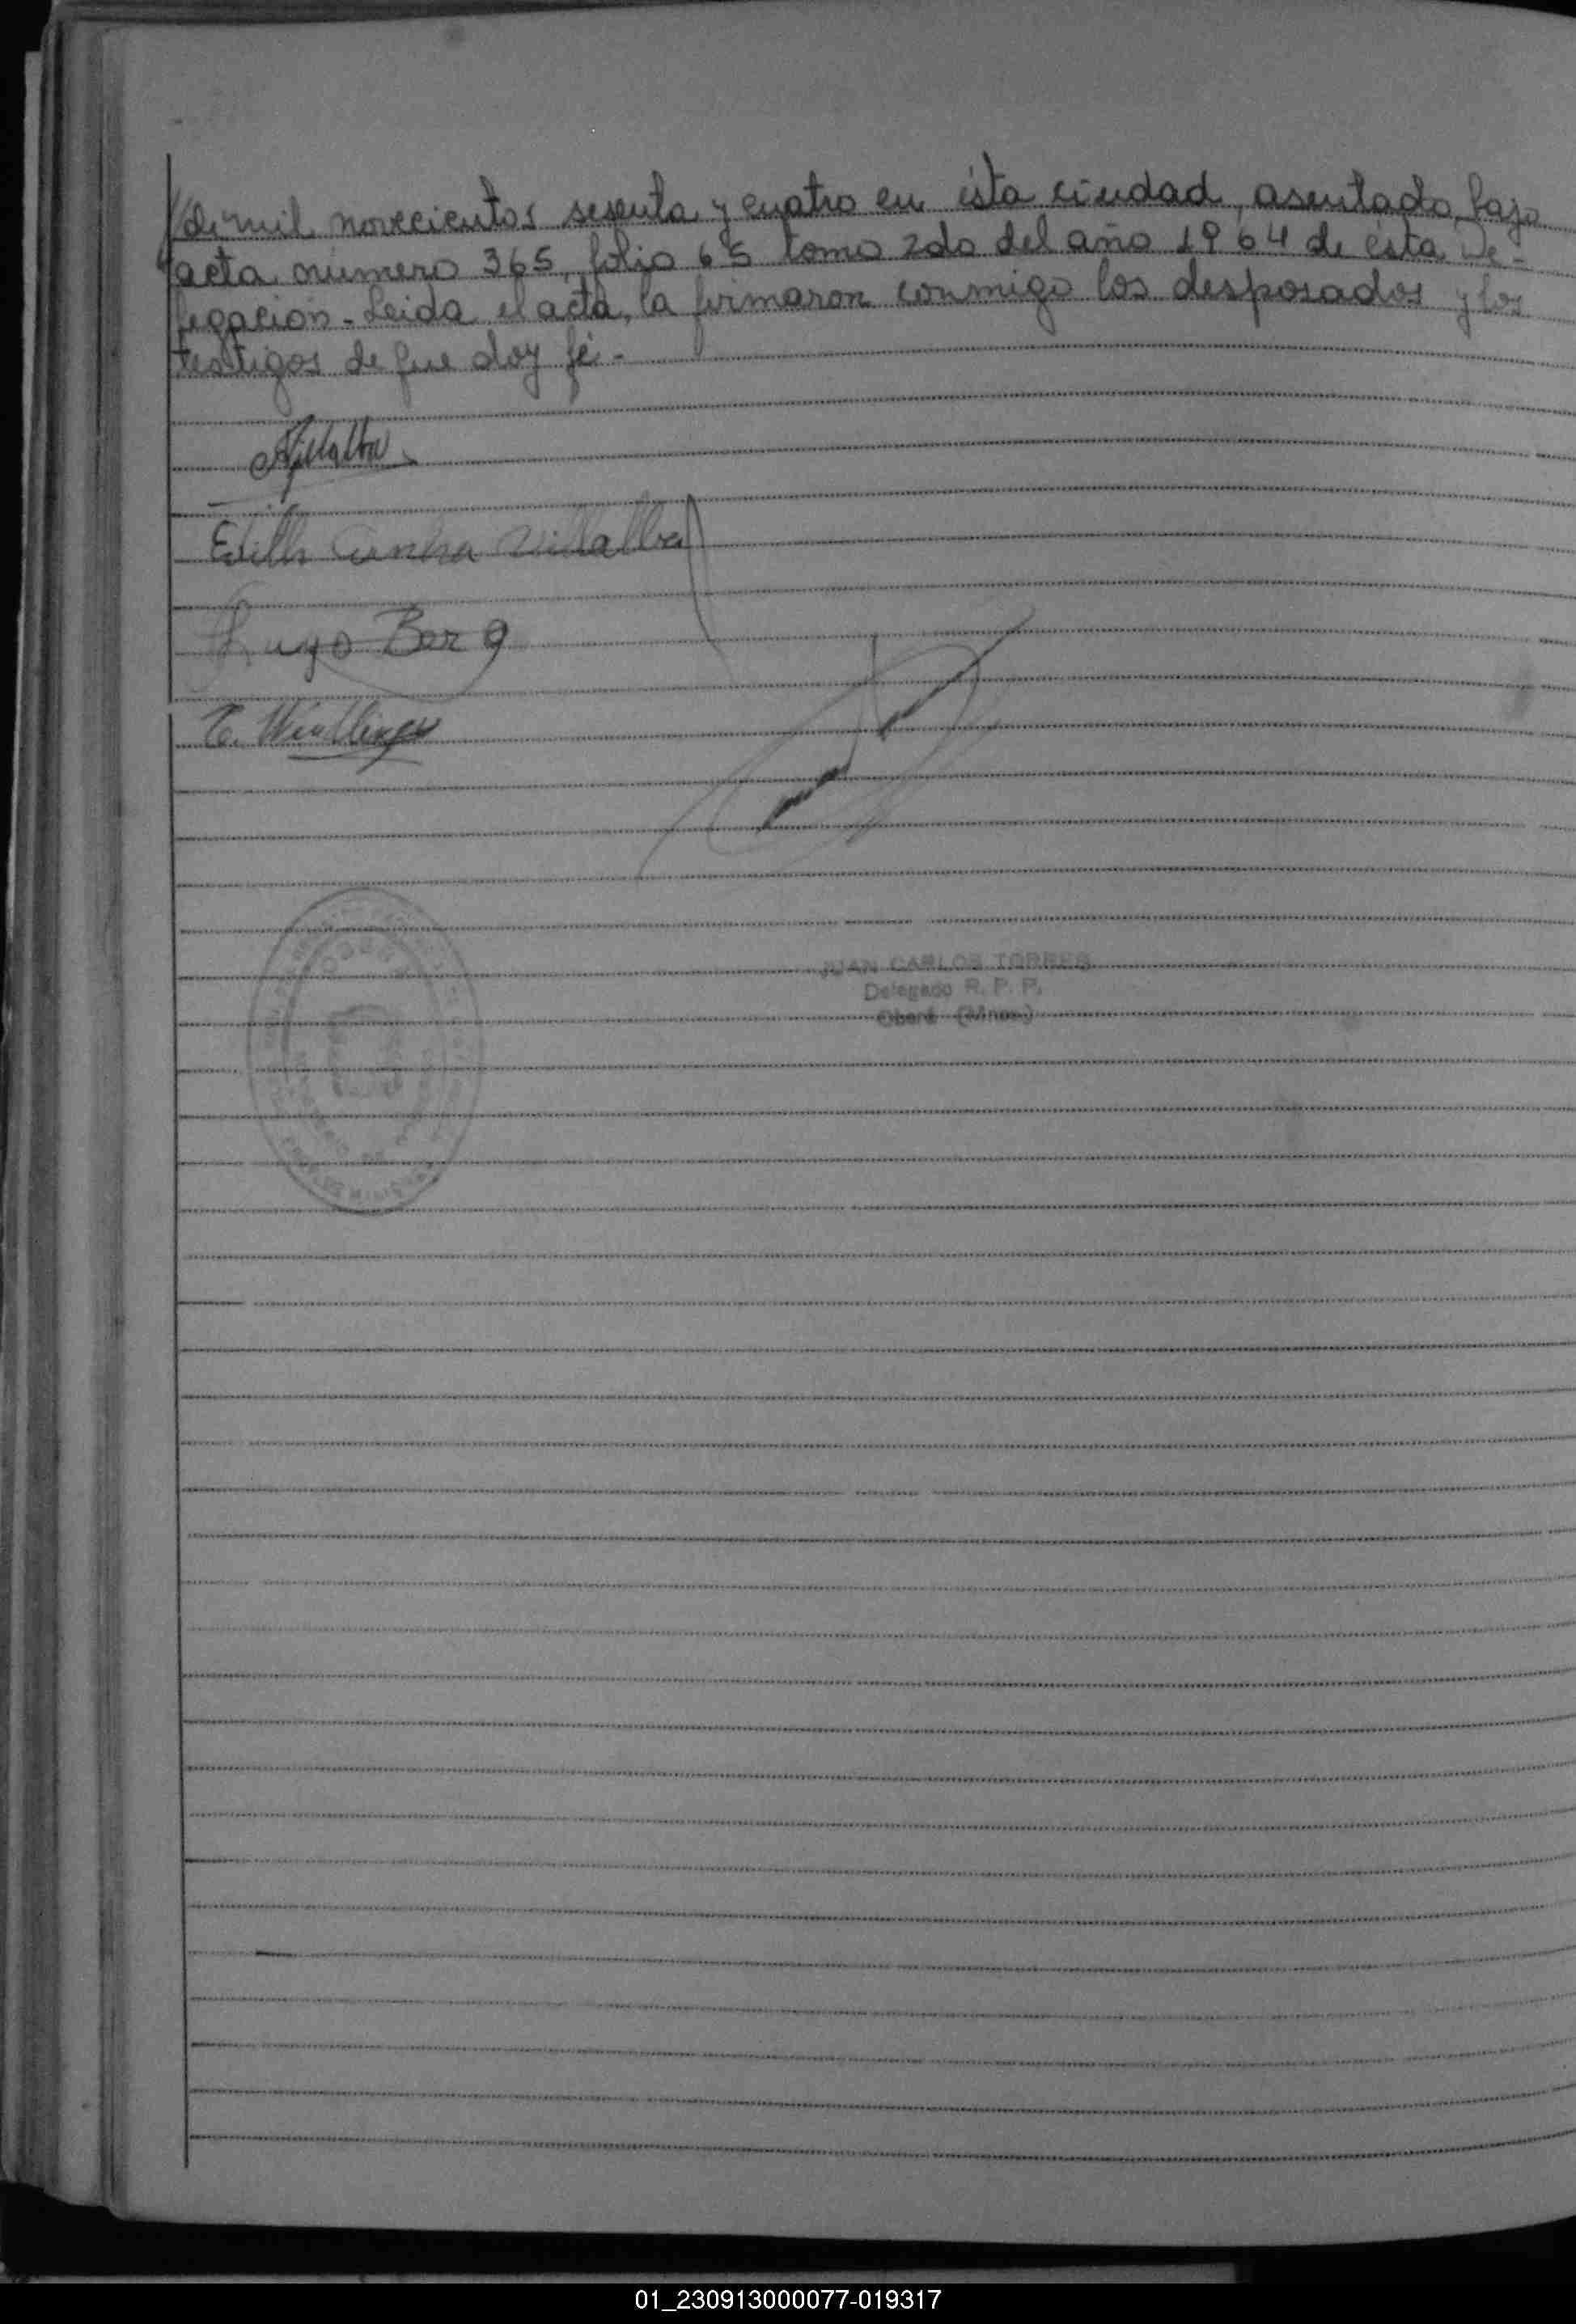 de mil novecientos sesenta y cuatro en ésta ciudad, asentado bajo
acta número 365, folio 65 tomo 2do del año 1964 de ésta De-
legación - Leida el acta, la firmaron conmigo los desposados y los
testigos de que doy fé -
Villalba
Edith Cunha Villalba
Hugo Berg
JUAN CARLOS TORRES
Delegado R. P. P.
Oberá (Mnes.)
01_230913000077-019317